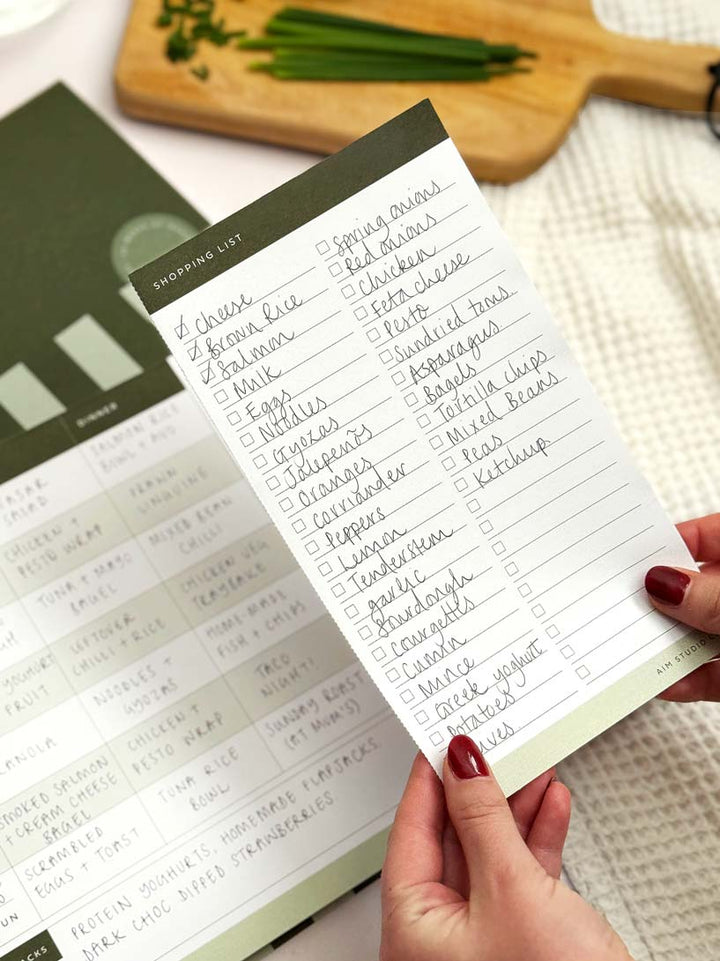 SHOPPING LIST
Cheese
Brown Rice
Salmon
Milk
Eggs
Noodles
Gyozas
Jalepeños
Oranges
Corriander
Peppers
Lemon
Tenderstem
garlic
Sourdough
Courgettes
Cumin
Mince
Greek yoghurt
Potatoes
Spring onions
Red onions
Chicken
Feta cheese
Pesto
Sundried toms
Asparagus
Bagels
Tortilla chips
Mixed Beans
Peas
Ketchup
AIM STUDIO
DINNER
SALMON RICE
BOWL +
SALAD
PRAWN
LINGUINE
CHICKEN +
PESTO WRAP
MIXED BEAN
CHILLI
TUNA + MAYO
BAGEL
CHICKEN VEG
TRAYBAKE
YOGHURT
FRUIT
LEFTOVER
CHILLI + RICE
HOME-MADE
FISH + CHIPS
NOODLES +
GYOZAS
TACO
NIGHT!
CHICKEN +
PESTO WRAP
SUNDAY ROAST
(AT MUM'S)
SMOKED SALMON
+ CREAM CHEESE
BAGEL
TUNA RICE
BOWL
SCRAMBLED
EGGS + TOAST
PROTEIN YOGHURTS, HOMEMADE FLAPJACKS
DARK CHOC DIPPED STRAWBERRIES